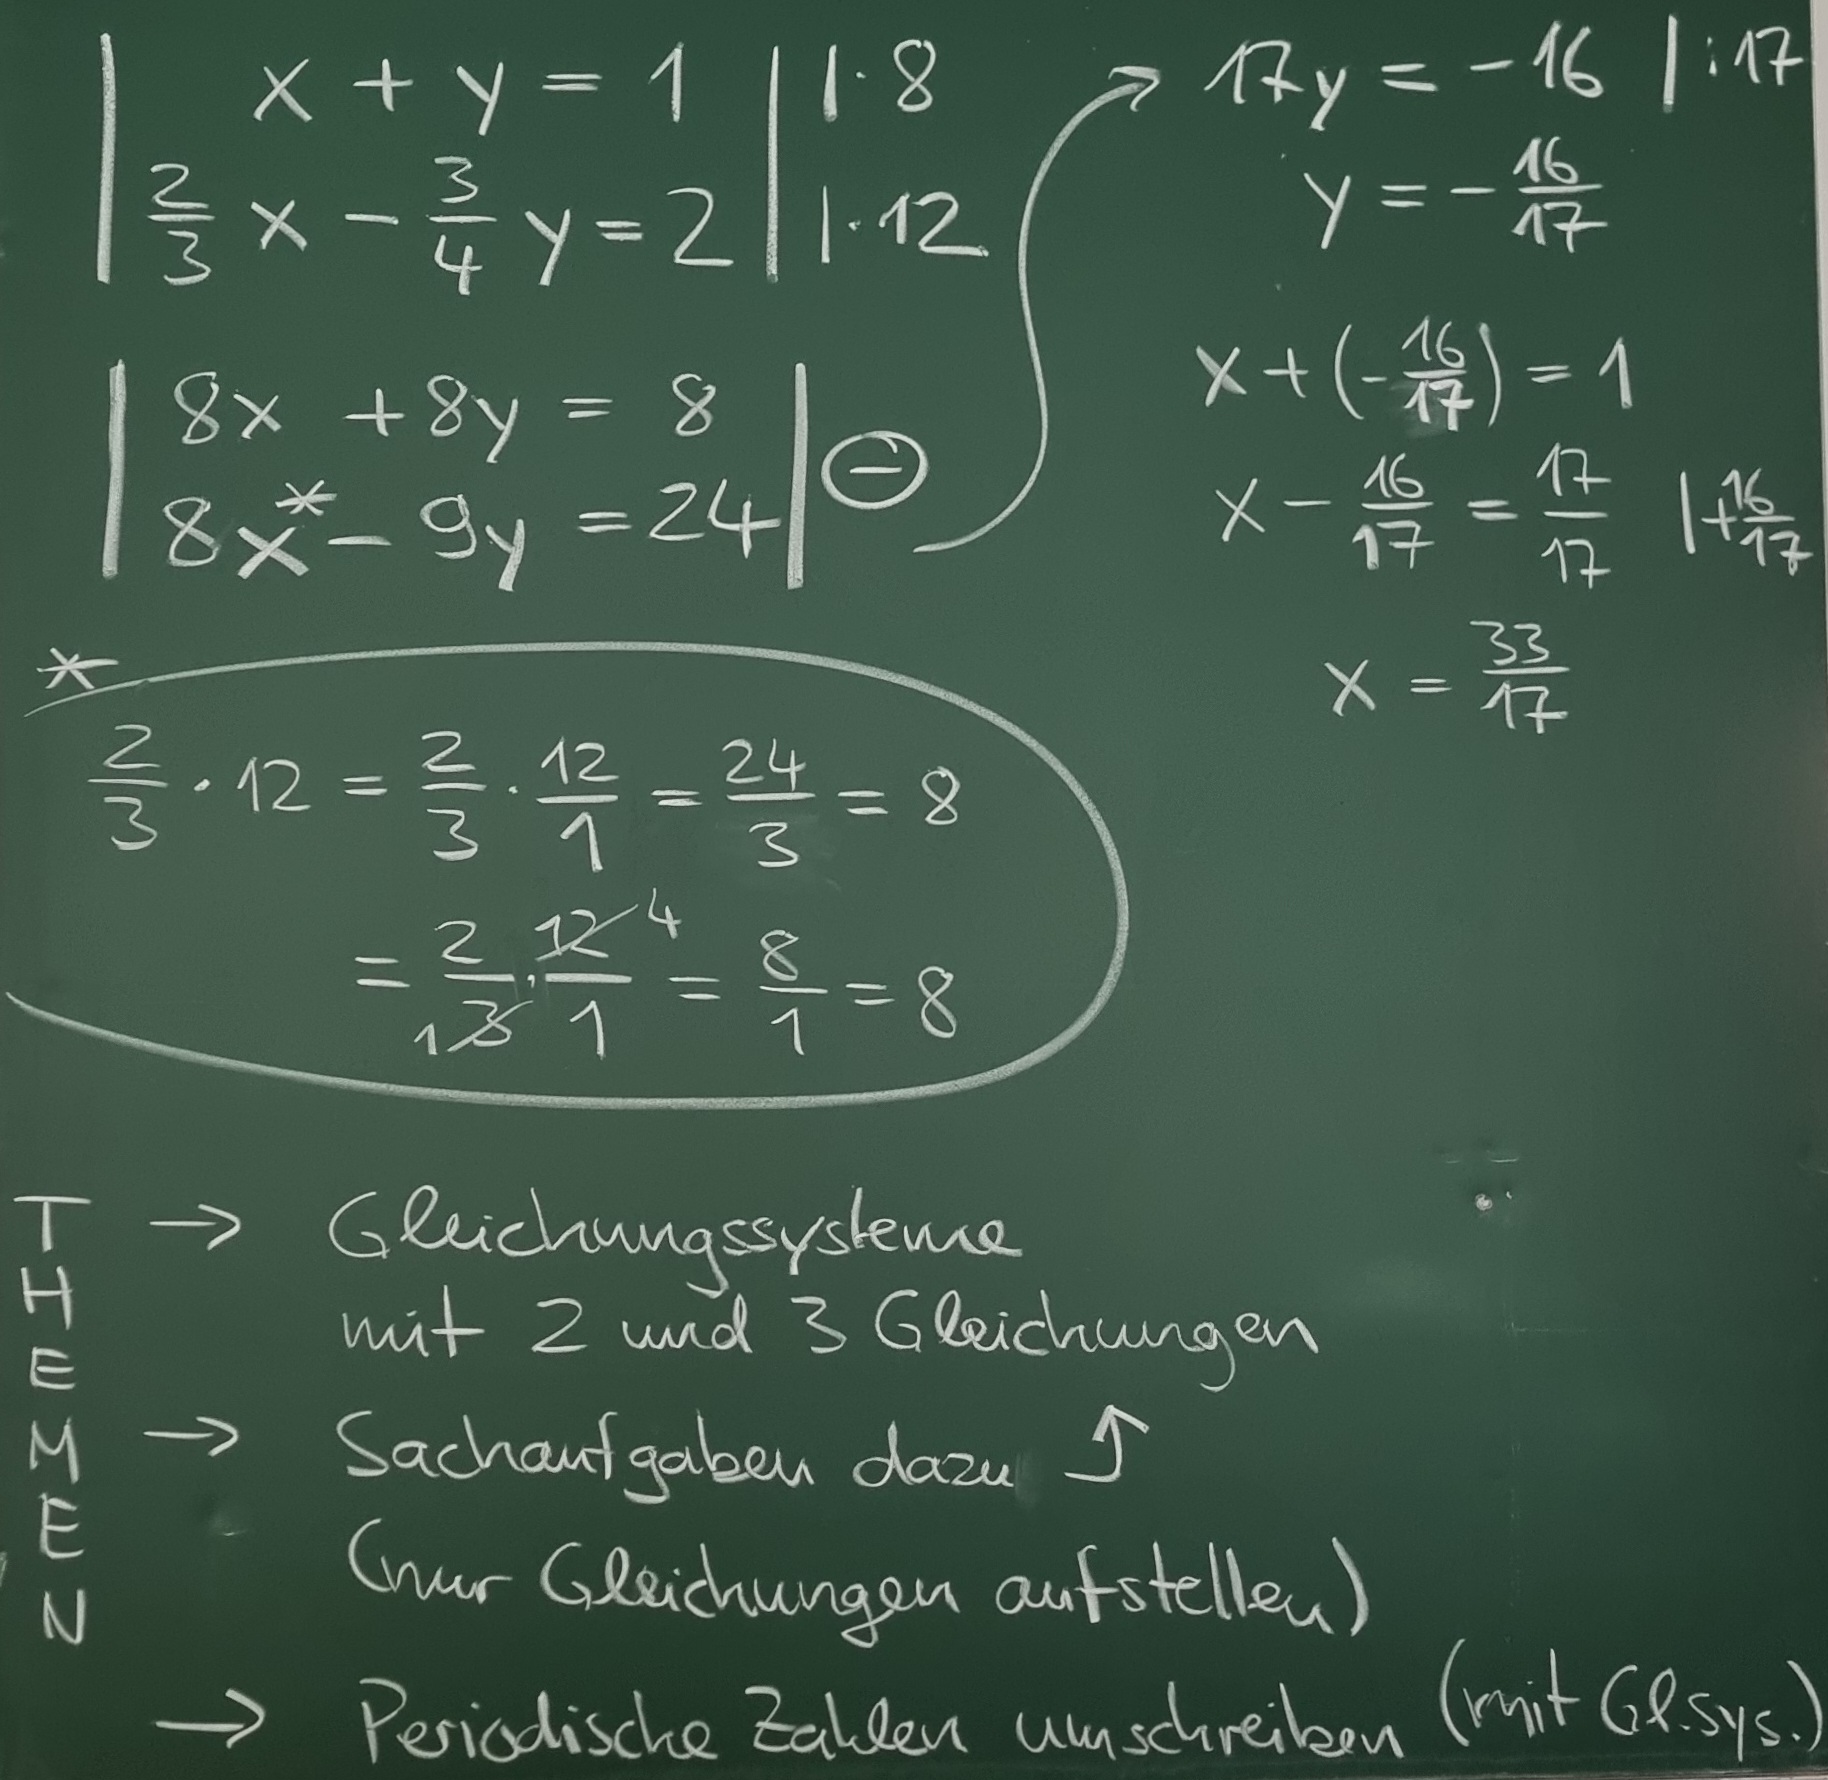 | x + y = 1 | | · 8
| 2/3 x − 3/4 y = 2 | | · 12
| 8x + 8y = 8 |
| 8x* − 9y = 24 | ⊖
→ 17y = −16 | : 17
y = − 16/17
x + (− 16/17) = 1
x − 16/17 = 17/17 | + 16/17
x = 33/17
*
2/3 · 12 = 2/3 · 12/1 = 24/3 = 8
= 2/3 1 · 12/1 4 = 8/1 = 8
THEMEN
→ Gleichungssysteme
mit 2 und 3 Gleichungen
→ Sachaufgaben dazu ↑
(nur Gleichungen aufstellen)
→ Periodische Zahlen umschreiben (mit Gl.sys.)